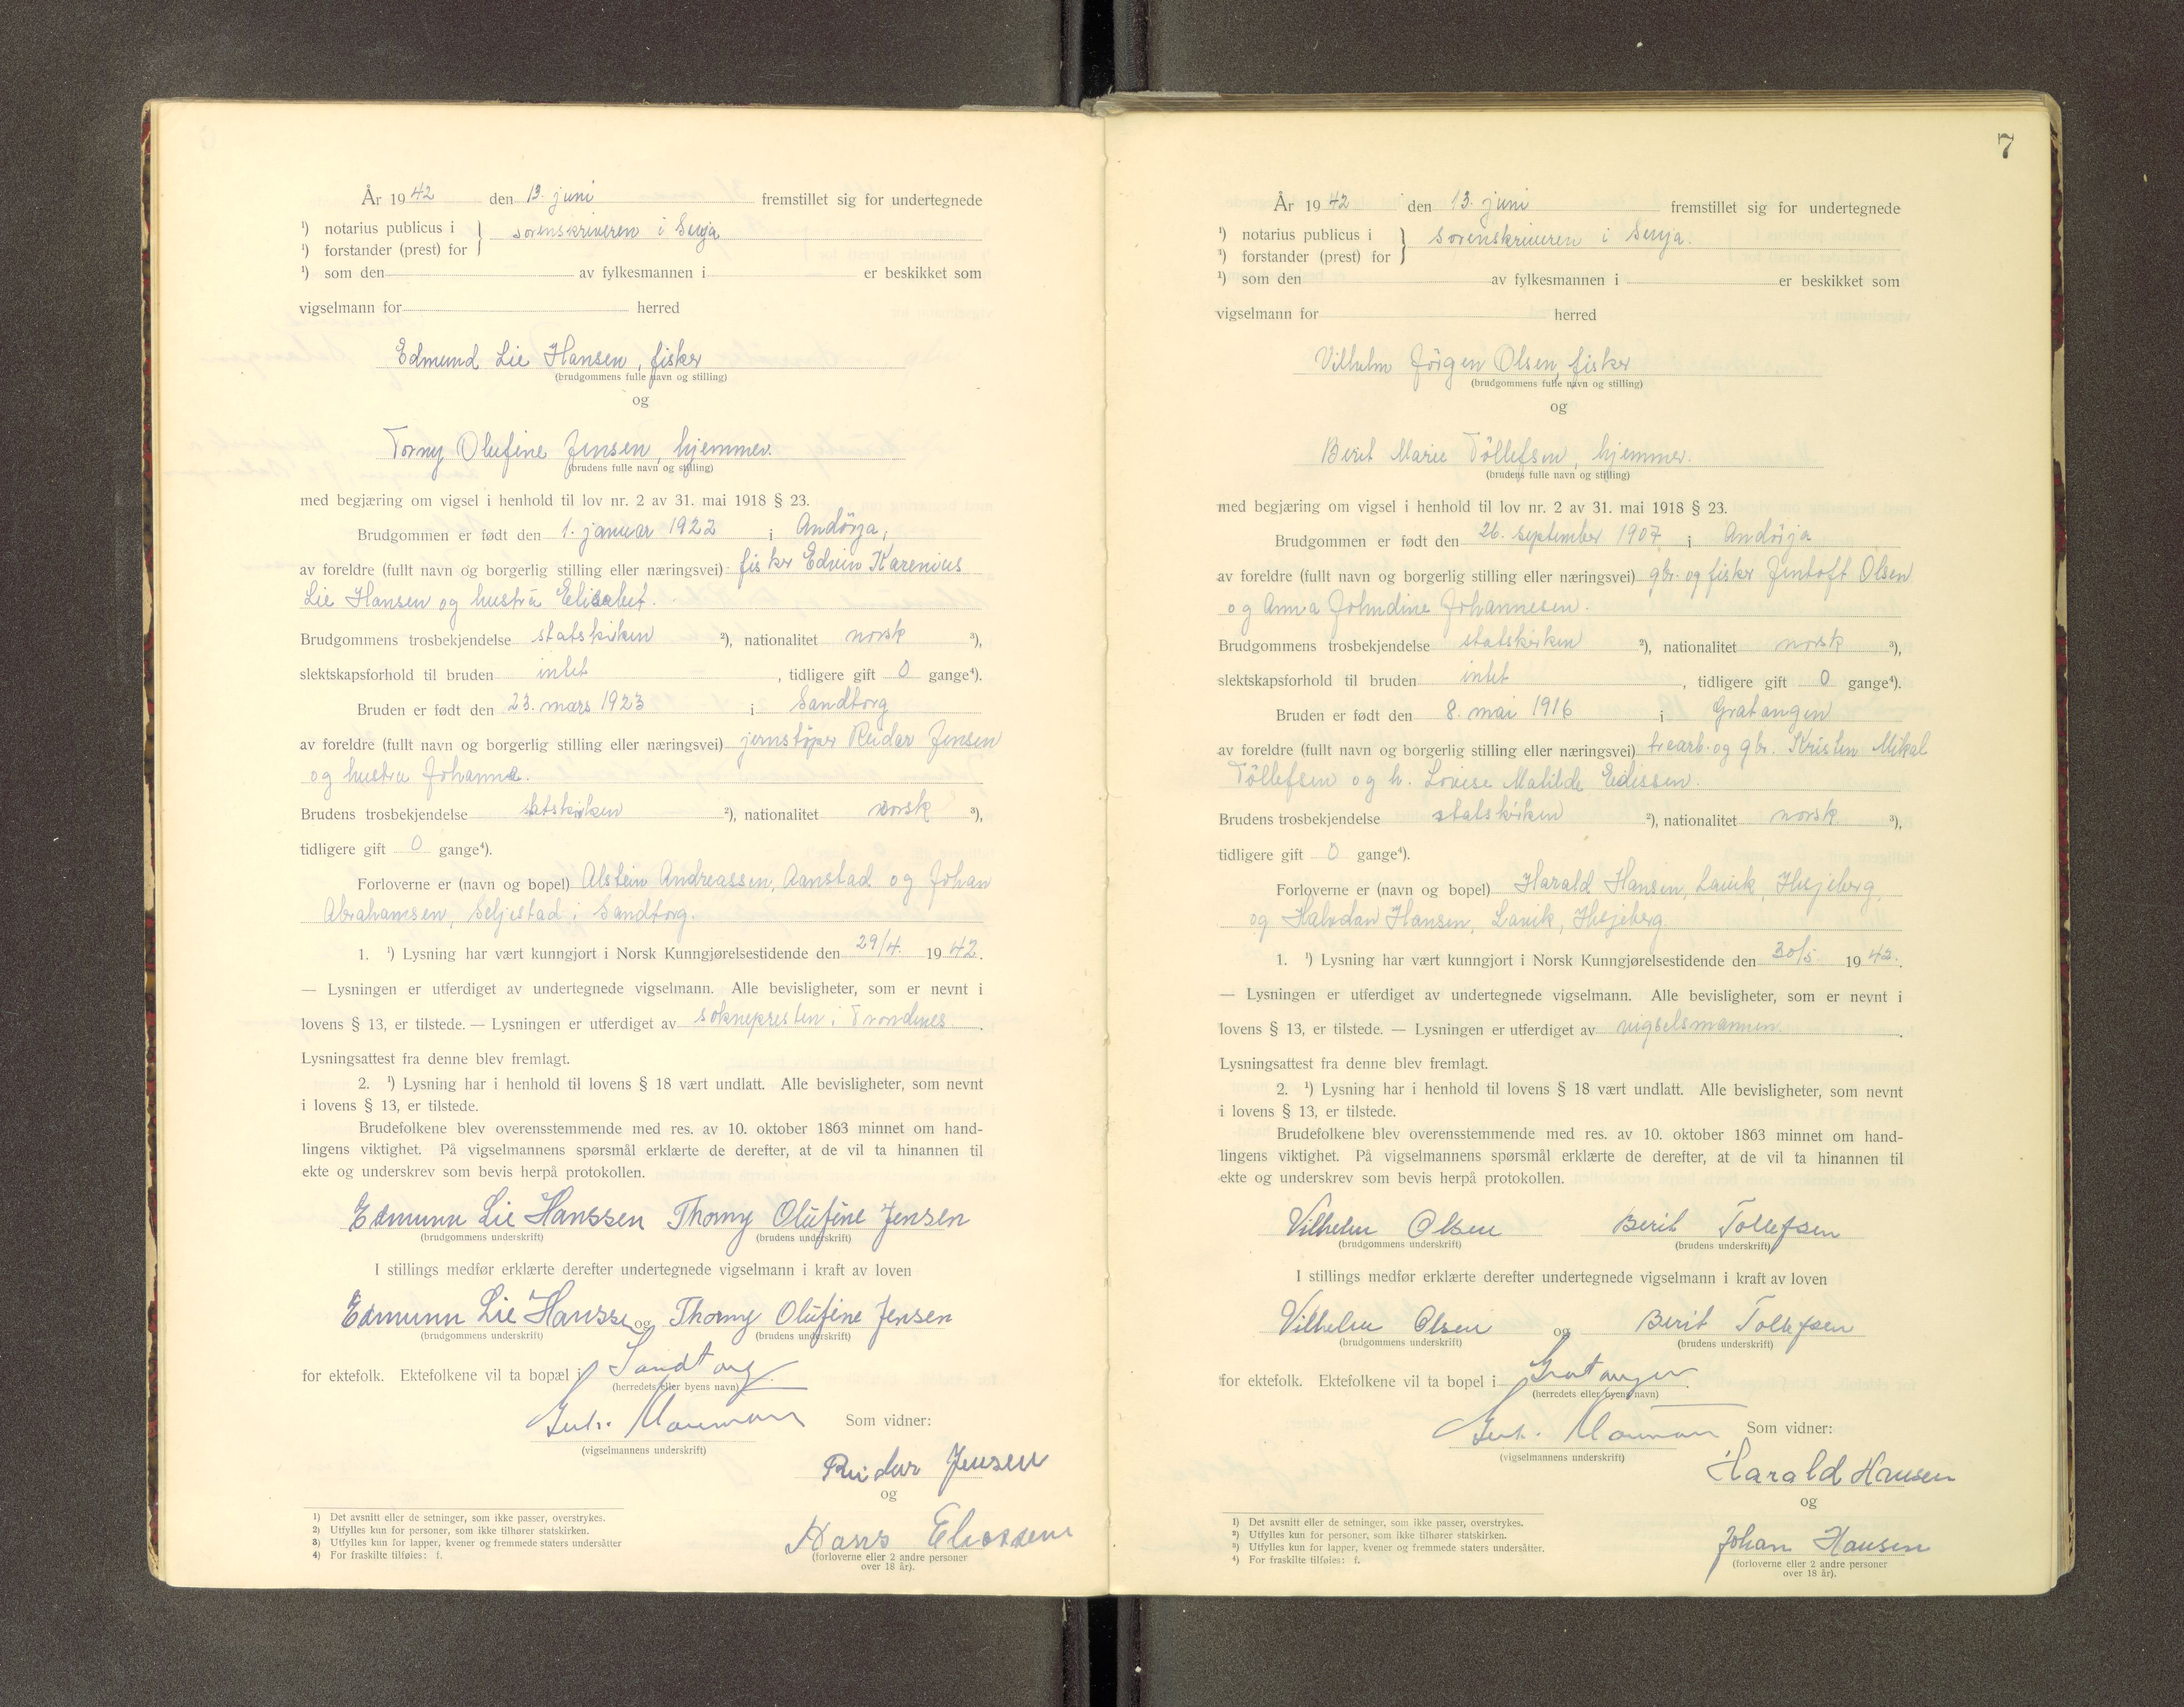 År 1942 den 13. juni fremstillet sig for undertegnede
¹) notarius publicus i } sorenskriveren i Senja
¹) forstander (prest) for
¹) som den av fylkesmannen i er beskikket som
vigselmann for herred
Edmund Lie Hansen, fisker
(brudgommens fulle navn og stilling)
og
Torny Olufine Jensen, hjemmev.
(brudens fulle navn og stilling)
med begjæring om vigsel i henhold til lov nr. 2 av 31. mai 1918 § 23.
Brudgommen er født den 1. januar 1922 i Andörja,
av foreldre (fullt navn og borgerlig stilling eller næringsvei) fisker Edvin Karenius
Lie Hansen og hustru Elisabet.
Brudgommens trosbekjendelse statskirken ²), nationalitet norsk ³),
slektskapsforhold til bruden intet , tidligere gift 0 gange⁴).
Bruden er født den 23. mars 1923 i Sandtorg
av foreldre (fullt navn og borgerlig stilling eller næringsvei) jernstöper Reidar Jensen
og hustru Johanna.
Brudens trosbekjendelse statskirken ²), nationalitet norsk ³),
tidligere gift 0 gange⁴).
Forloverne er (navn og bopel) Alstein Andreassen, Aanstad og Johan
Abrahamsen, Seljestad i Sandtorg.
1. ¹) Lysning har vært kunngjort i Norsk Kunngjørelsestidende den 29/4. 1942.
— Lysningen er utferdiget av undertegnede vigselmann. Alle bevisligheter, som er nevnt i
lovens § 13, er tilstede. — Lysningen er utferdiget av soknepresten i Trondenes.
Lysningsattest fra denne blev fremlagt.
2. ¹) Lysning har i henhold til lovens § 18 vært undlatt. Alle bevisligheter, som nevnt
i lovens § 13, er tilstede.
Brudefolkene blev overensstemmende med res. av 10. oktober 1863 minnet om hand-
lingens viktighet. På vigselmannens spørsmål erklærte de derefter, at de vil ta hinannen til
ekte og underskrev som bevis herpå protokollen.
Edmunn Lie Hanssen Thorny Olufine Jensen
(brudgommens underskrift) (brudens underskrift)
I stillings medfør erklærte derefter undertegnede vigselmann i kraft av loven
Edmunn Lie Hansse og Thorny Olufine Jensen
(brudgommens underskrift) (brudens underskrift)
for ektefolk. Ektefolkene vil ta bopæl i Sandtorg.
(herredets eller byens navn)
Som vidner:
(vigselmannens underskrift)
Reidar Jensen
og
Hans Eliassen
(forloverne eller 2 andre personer
over 18 år).
1) Det avsnitt eller de setninger, som ikke passer, overstrykes.
2) Utfylles kun for personer, som ikke tilhører statskirken.
3) Utfylles kun for lapper, kvener og fremmede staters undersåtter
4) For fraskilte tilføies: f.
7
År 1942 den 13. juni fremstillet sig for undertegnede
¹) notarius publicus i } sorenskriveren i Senja.
¹) forstander (prest) for
¹) som den av fylkesmannen i er beskikket som
vigselmann for herred
Vilhelm Jörgen Olsen, fisker
(brudgommens fulle navn og stilling)
og
Berit Marie Töllefsen, hjemmev.
(brudens fulle navn og stilling)
med begjæring om vigsel i henhold til lov nr. 2 av 31. mai 1918 § 23.
Brudgommen er født den 26. september 1907 i Andörja
av foreldre (fullt navn og borgerlig stilling eller næringsvei) gbr. og fisker Jentoft Olsen
og Anna Johndine Johannesen.
Brudgommens trosbekjendelse statskirken ²), nationalitet norsk ³),
slektskapsforhold til bruden intet , tidligere gift 0 gange⁴).
Bruden er født den 8. mai 1916 i Gratangen
av foreldre (fullt navn og borgerlig stilling eller næringsvei) trearb. og gbr. Kristen Mikal
Töllefsen og h. Lovise Matilde Edissen.
Brudens trosbekjendelse statskirken ²), nationalitet norsk ³),
tidligere gift 0 gange⁴).
Forloverne er (navn og bopel) Harald Hansen, Lavik, Hesjeberg,
og Halvdan Hansen, Lavik, Hesjeberg.
1. ¹) Lysning har vært kunngjort i Norsk Kunngjørelsestidende den 30/5 1942.
— Lysningen er utferdiget av undertegnede vigselmann. Alle bevisligheter, som er nevnt i
lovens § 13, er tilstede. — Lysningen er utferdiget av vigselsmannen.
Lysningsattest fra denne blev fremlagt.
2. ¹) Lysning har i henhold til lovens § 18 vært undlatt. Alle bevisligheter, som nevnt
i lovens § 13, er tilstede.
Brudefolkene blev overensstemmende med res. av 10. oktober 1863 minnet om hand-
lingens viktighet. På vigselmannens spørsmål erklærte de derefter, at de vil ta hinannen til
ekte og underskrev som bevis herpå protokollen.
Vilhelm Olsen Berit Tollefsen
(brudgommens underskrift) (brudens underskrift)
I stillings medfør erklærte derefter undertegnede vigselmann i kraft av loven
Vilhelm Olsen og Berit Tollefsen
(brudgommens underskrift) (brudens underskrift)
for ektefolk. Ektefolkene vil ta bopel i Gratangen.
(herredets eller byens navn)
Som vidner:
(vigselmannens underskrift)
Harald Hansen
og
Johan Hansen
(forloverne eller 2 andre personer
over 18 år).
1) Det avsnitt eller de setninger, som ikke passer, overstrykes.
2) Utfylles kun for personer, som ikke tilhører statskirken.
3) Utfylles kun for lapper, kvener og fremmede staters undersåtter.
4) For fraskilte tilføies: f.